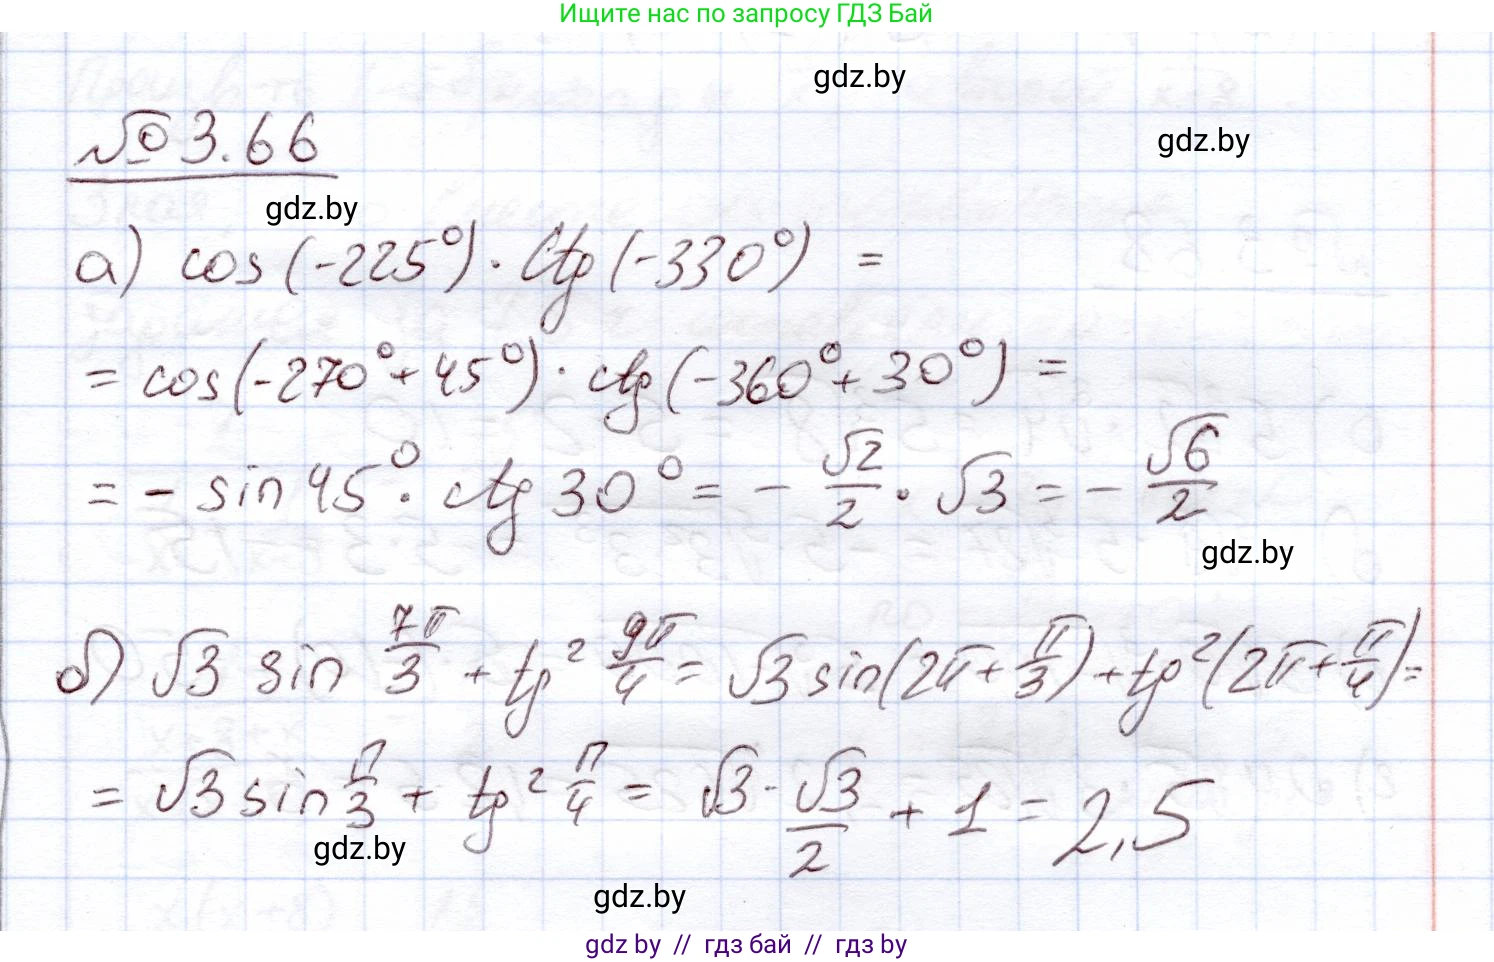 Ищите нас по запросу ГДЗ Бай
gdz.by
№ 3.66
gdz.by
gdz.by
а) cos(-225°) · ctg(-330°) =
= cos(-270° + 45°) · ctg(-360° + 30°) =
= - sin 45° · ctg 30° = - √2/2 · √3 = - √6/2
gdz.by
б) √3 sin 7π/3 + tg² 9π/4 = √3 sin(2π + π/3) + tg²(2π + π/4) =
= √3 sin π/3 + tg² π/4 = √3 · √3/2 + 1 = 2,5
gdz.by
gdz.by
gdz by // гдз бай // гдз by